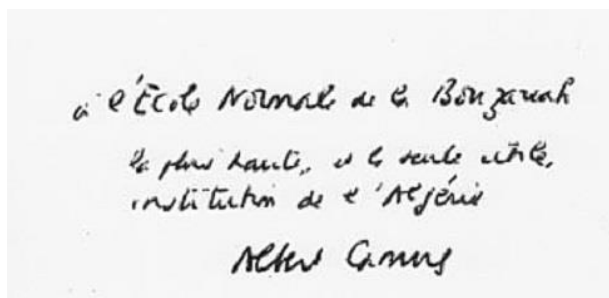 à l'École Normale de la Bouzareah
la plus haute, et la seule utile,
institution de l'Algérie
Albert Camus